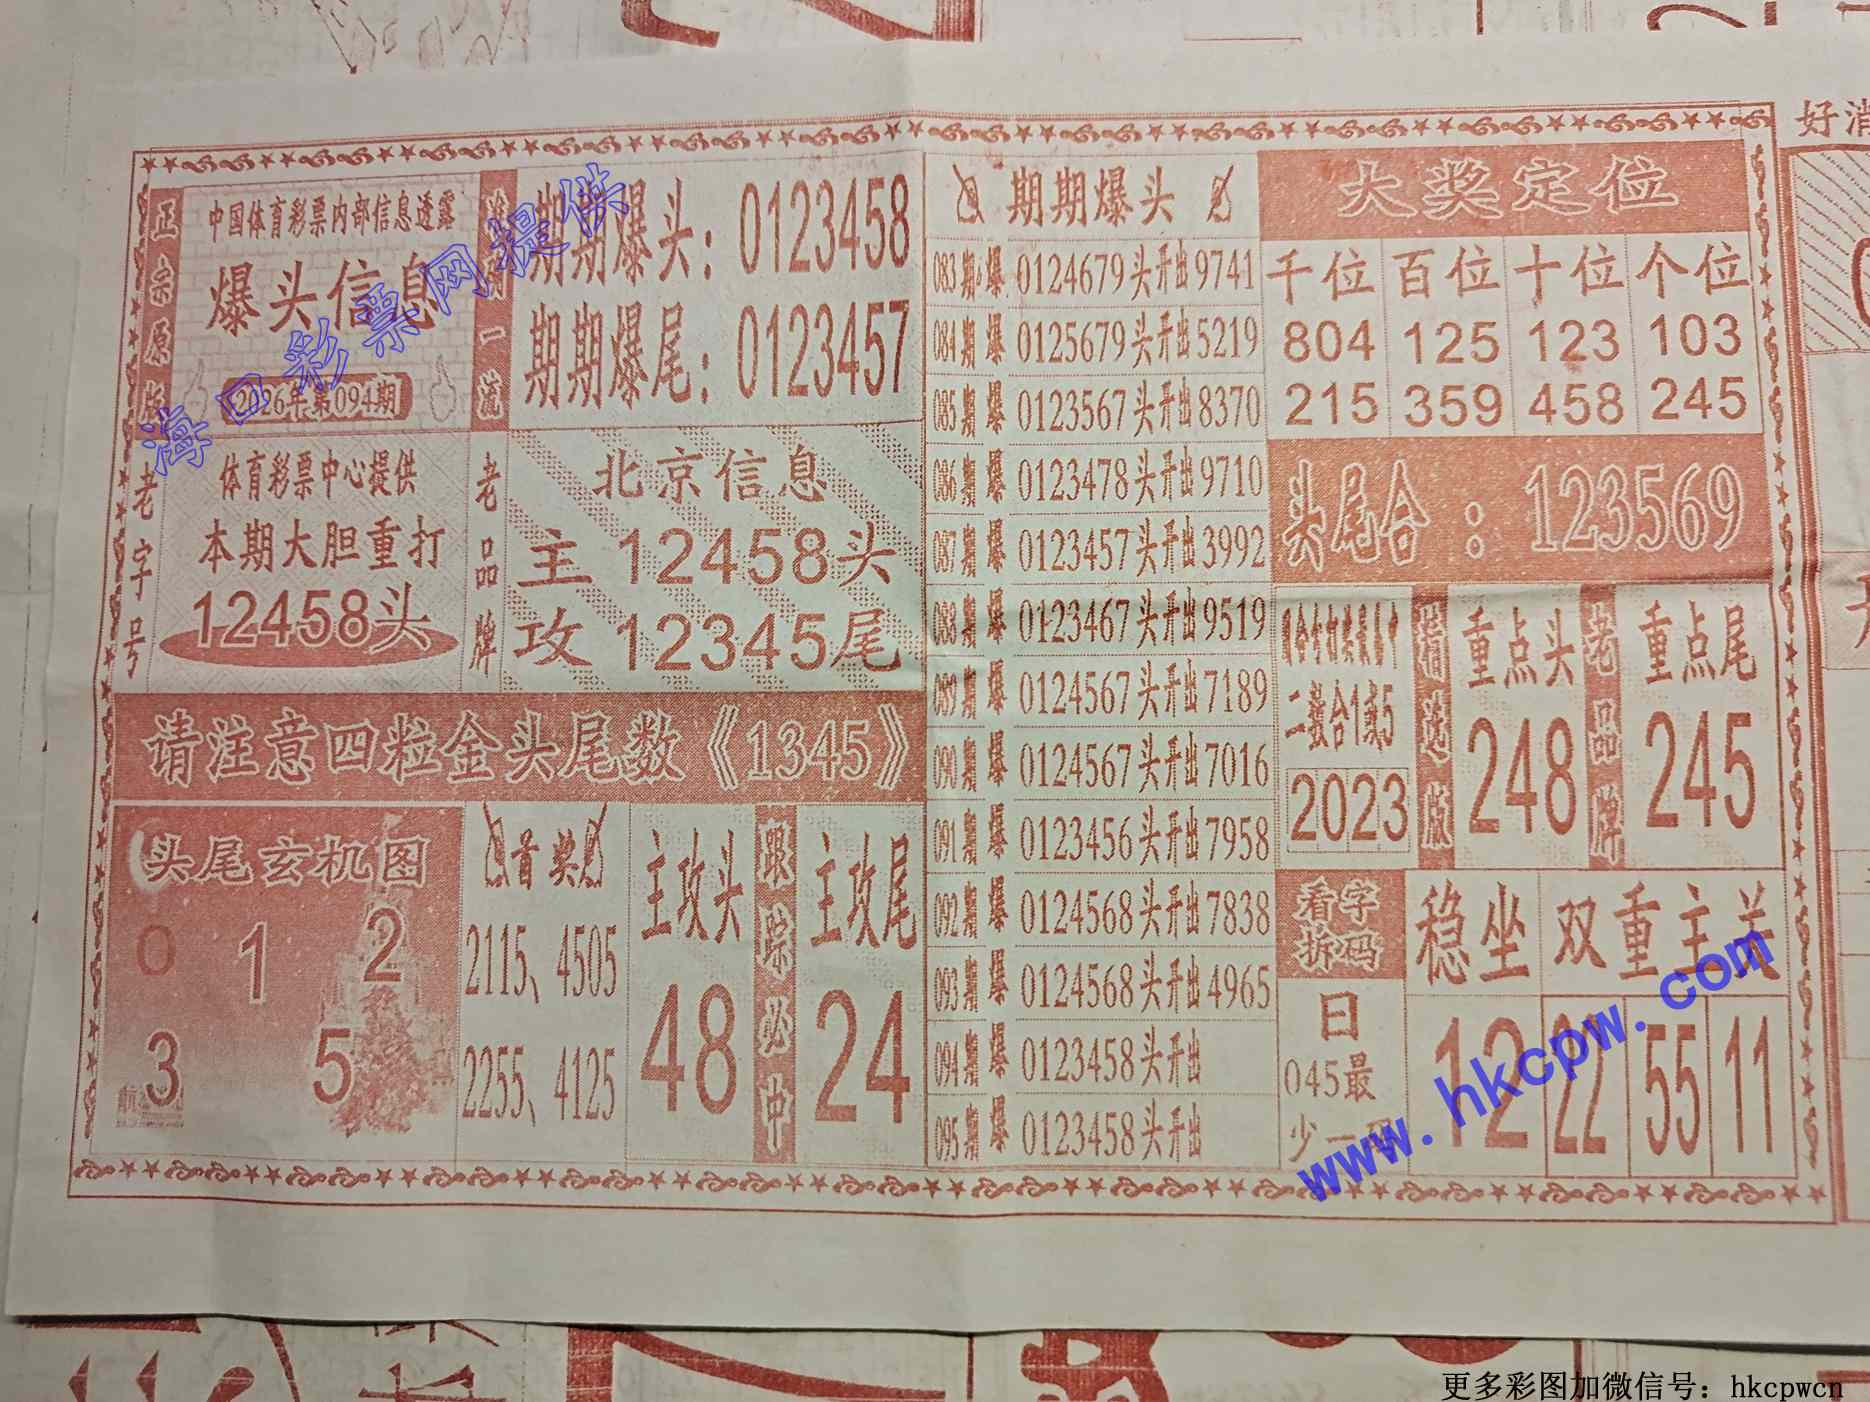 正宗原版
中国体育彩票内部信息透露
爆头信息
2026年第094期
海口彩票网提供
一流
期期爆头：0123458
期期爆尾：0123457
老字号
体育彩票中心提供
本期大胆重打
12458头
老品牌
北京信息
主 12458头
攻 12345尾
请注意四粒金头尾数《1345》
头尾玄机图
0 1 2
3 5
首奖
2115、4505
2255、4125
主攻头
48
跟踪必中
主攻尾
24
期期爆头
083期爆 0124679头开出9741
084期爆 0125679头开出5219
085期爆 0123567头开出8370
086期爆 0123478头开出9710
087期爆 0123457头开出3992
088期爆 0123467头开出9519
089期爆 0124567头开出7189
090期爆 0124567头开出7016
091期爆 0123456头开出7958
092期爆 0124568头开出7838
093期爆 0124568头开出4965
094期爆 0123458头开出
095期爆 0123458头开出
大奖定位
千位 百位 十位 个位
804 125 123 103
215 359 458 245
头尾合：123569
二数合1或5
2023
精选版
重点头
248
老品牌
重点尾
245
看字拆码
日
045最
少一码
稳坐
12
双重主关
22 55 11
www.hkcpw.com
好消
更多彩图加微信号：hkcpwcn